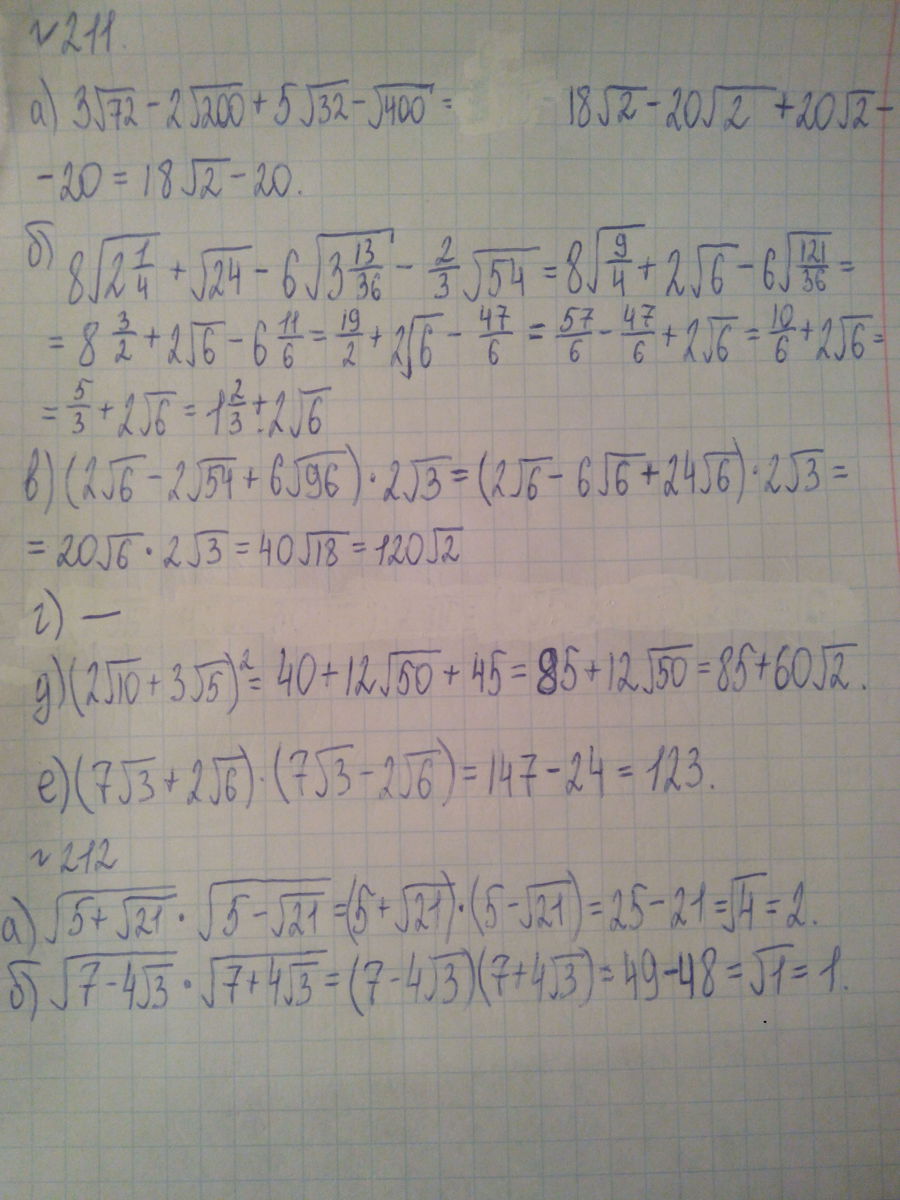 №211.
а) 3√72 - 2√200 + 5√32 - √400 = 18√2 - 20√2 + 20√2 -
- 20 = 18√2 - 20.
б) 8√(2 1/4) + √24 - 6√(3 13/36) - 2/3 √54 = 8√(9/4) + 2√6 - 6√(121/36) =
= 8 3/2 + 2√6 - 6 11/6 = 19/2 + 2√6 - 47/6 = 57/6 - 47/6 + 2√6 = 10/6 + 2√6 =
= 5/3 + 2√6 = 1 2/3 + 2√6
в) (2√6 - 2√54 + 6√96) · 2√3 = (2√6 - 6√6 + 24√6) · 2√3 =
= 20√6 · 2√3 = 40√18 = 120√2
г) —
д) (2√10 + 3√5)² = 40 + 12√50 + 45 = 85 + 12√50 = 85 + 60√2.
е) (7√3 + 2√6) · (7√3 - 2√6) = 147 - 24 = 123.
№212
а) √(5 + √21) · √(5 - √21) = (5 + √21) · (5 - √21) = 25 - 21 = √4 = 2.
б) √(7 - 4√3) · √(7 + 4√3) = (7 - 4√3)(7 + 4√3) = 49 - 48 = √1 = 1.